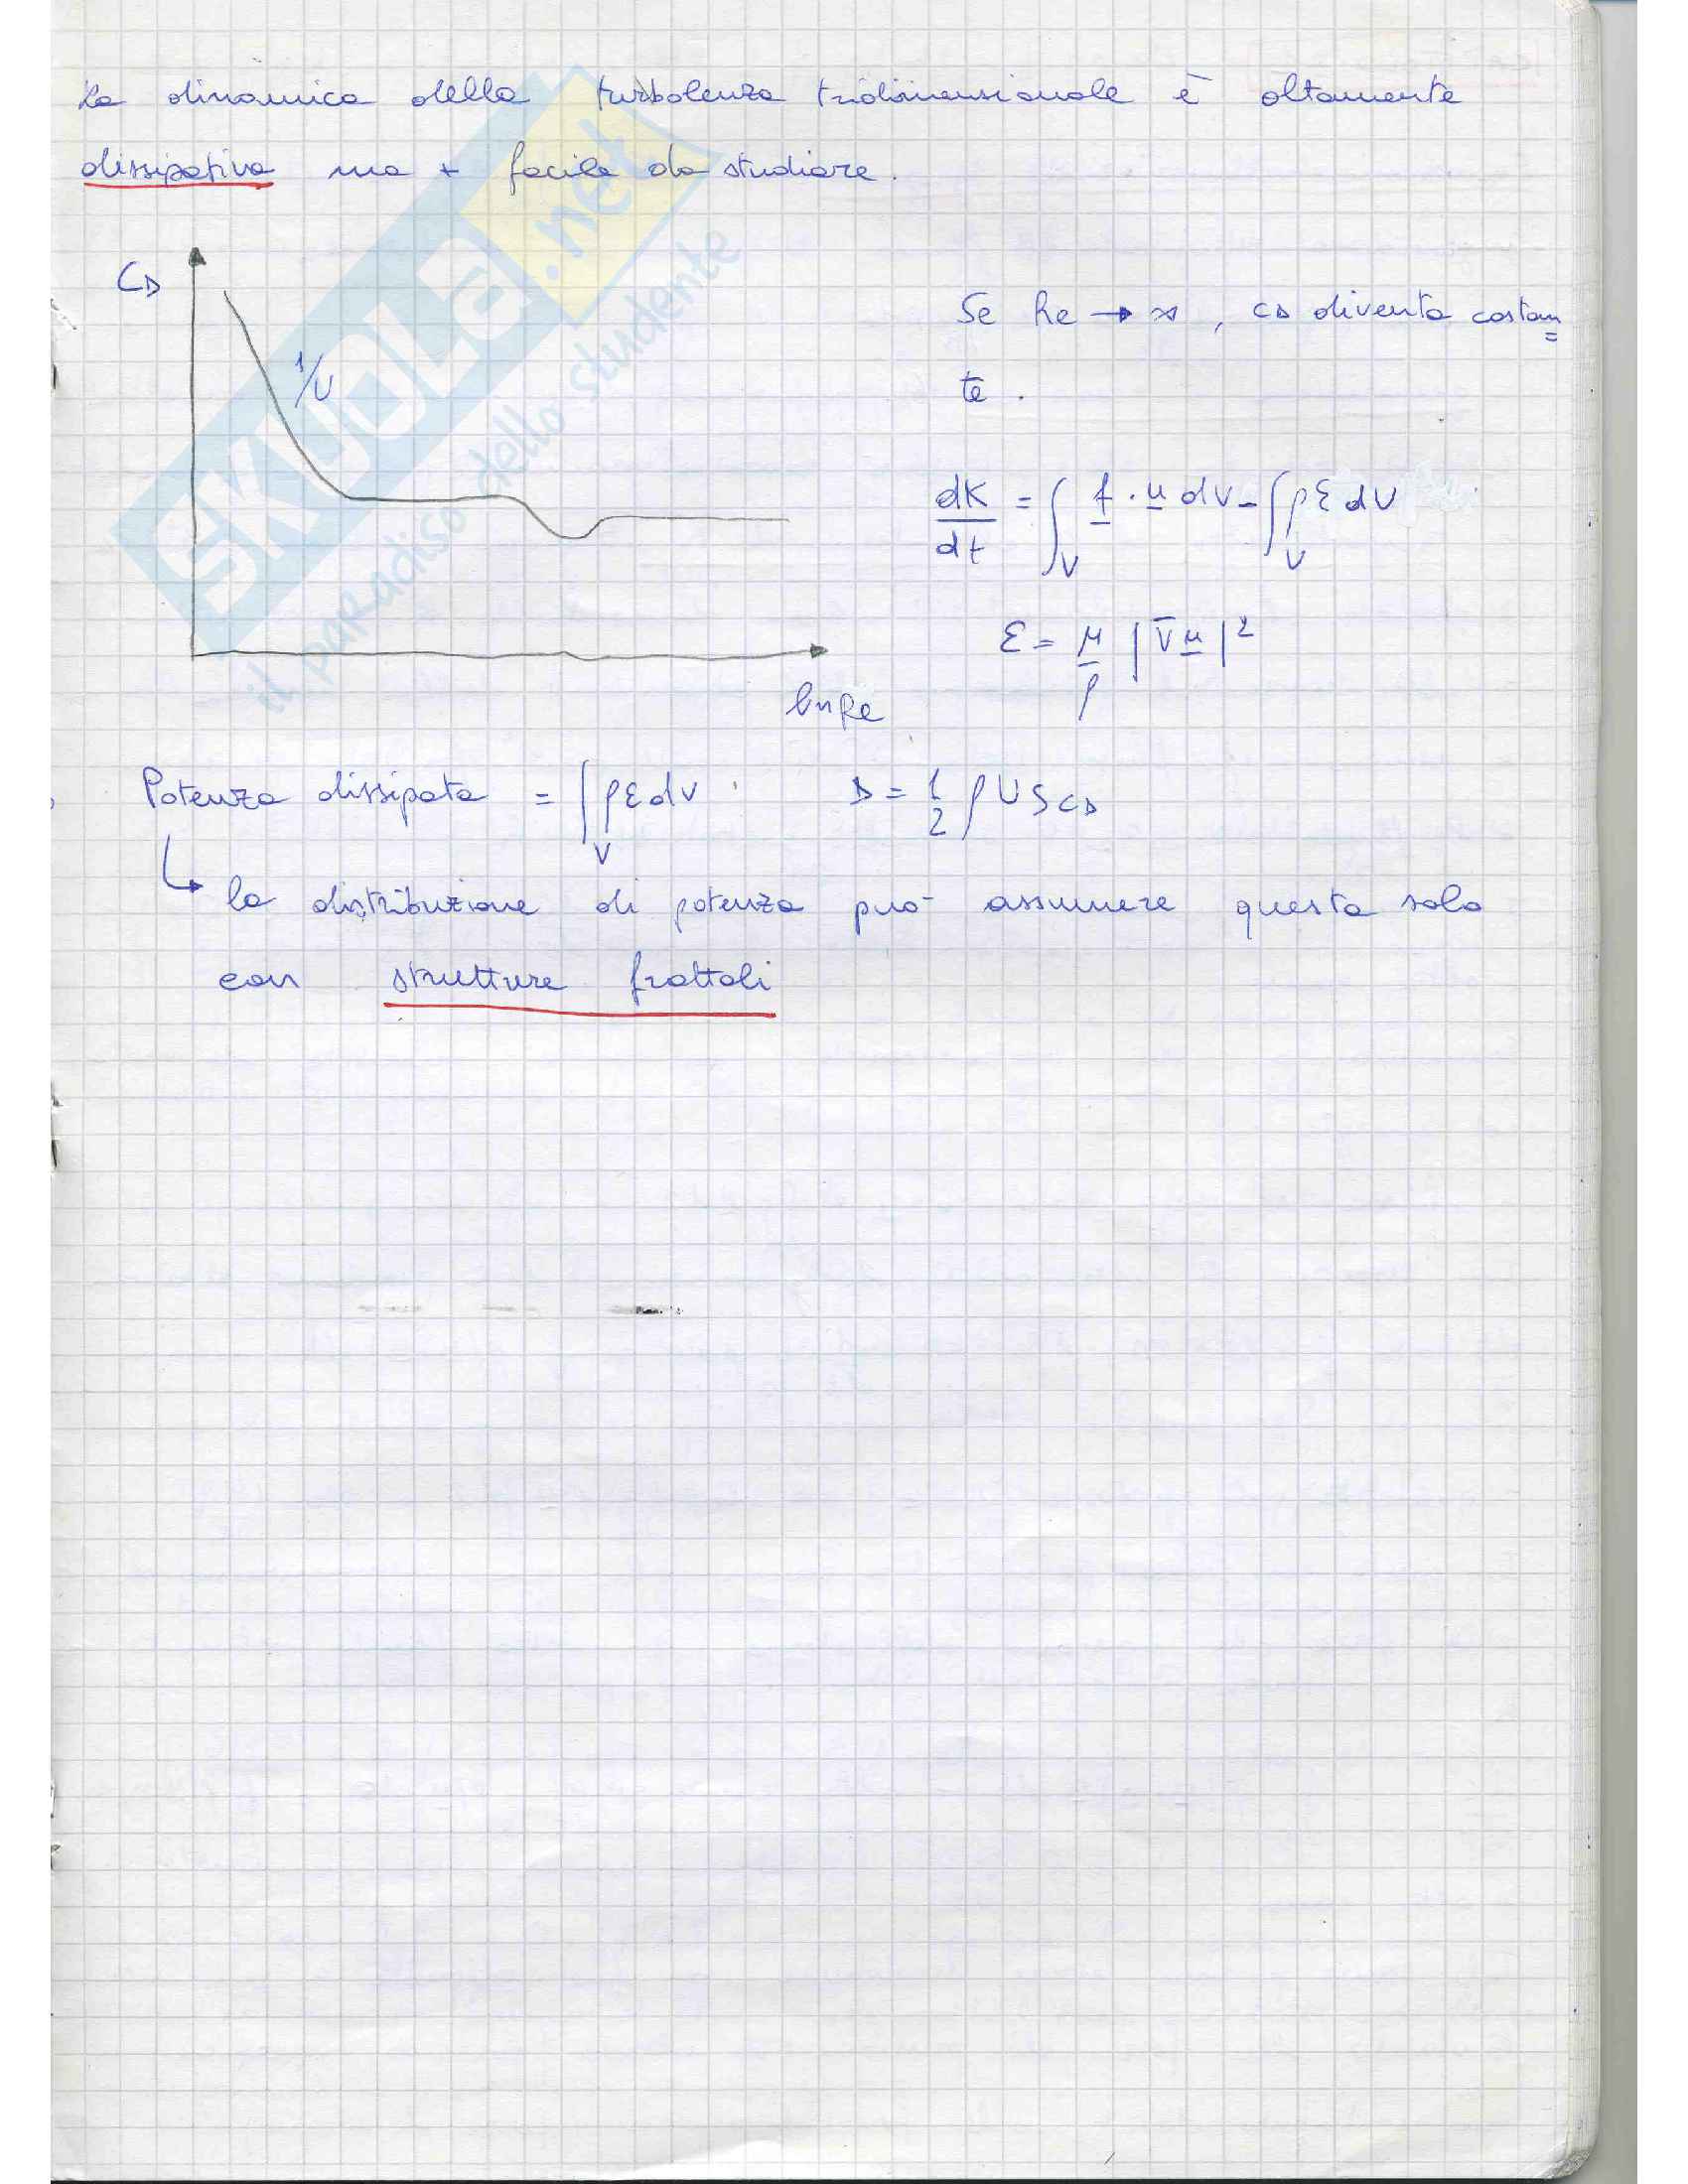 La dinamica della turbolenza tridimensionale è altamente
dissipativa ma + facile da studiare.
CD
1/U
Se Re → ∞, CD diventa costan=
te.
dK/dt = ∫_V f · u dV - ∫_V ρ ε dV
ε = μ/ρ |∇u|²
ln Re
Potenza dissipata = ∫_V ρ ε dV D = 1/2 ρ U S CD
↳ la distribuzione di potenza può assumere questa solo
con strutture frattali
SKUOLA.net
il paradiso dello studente